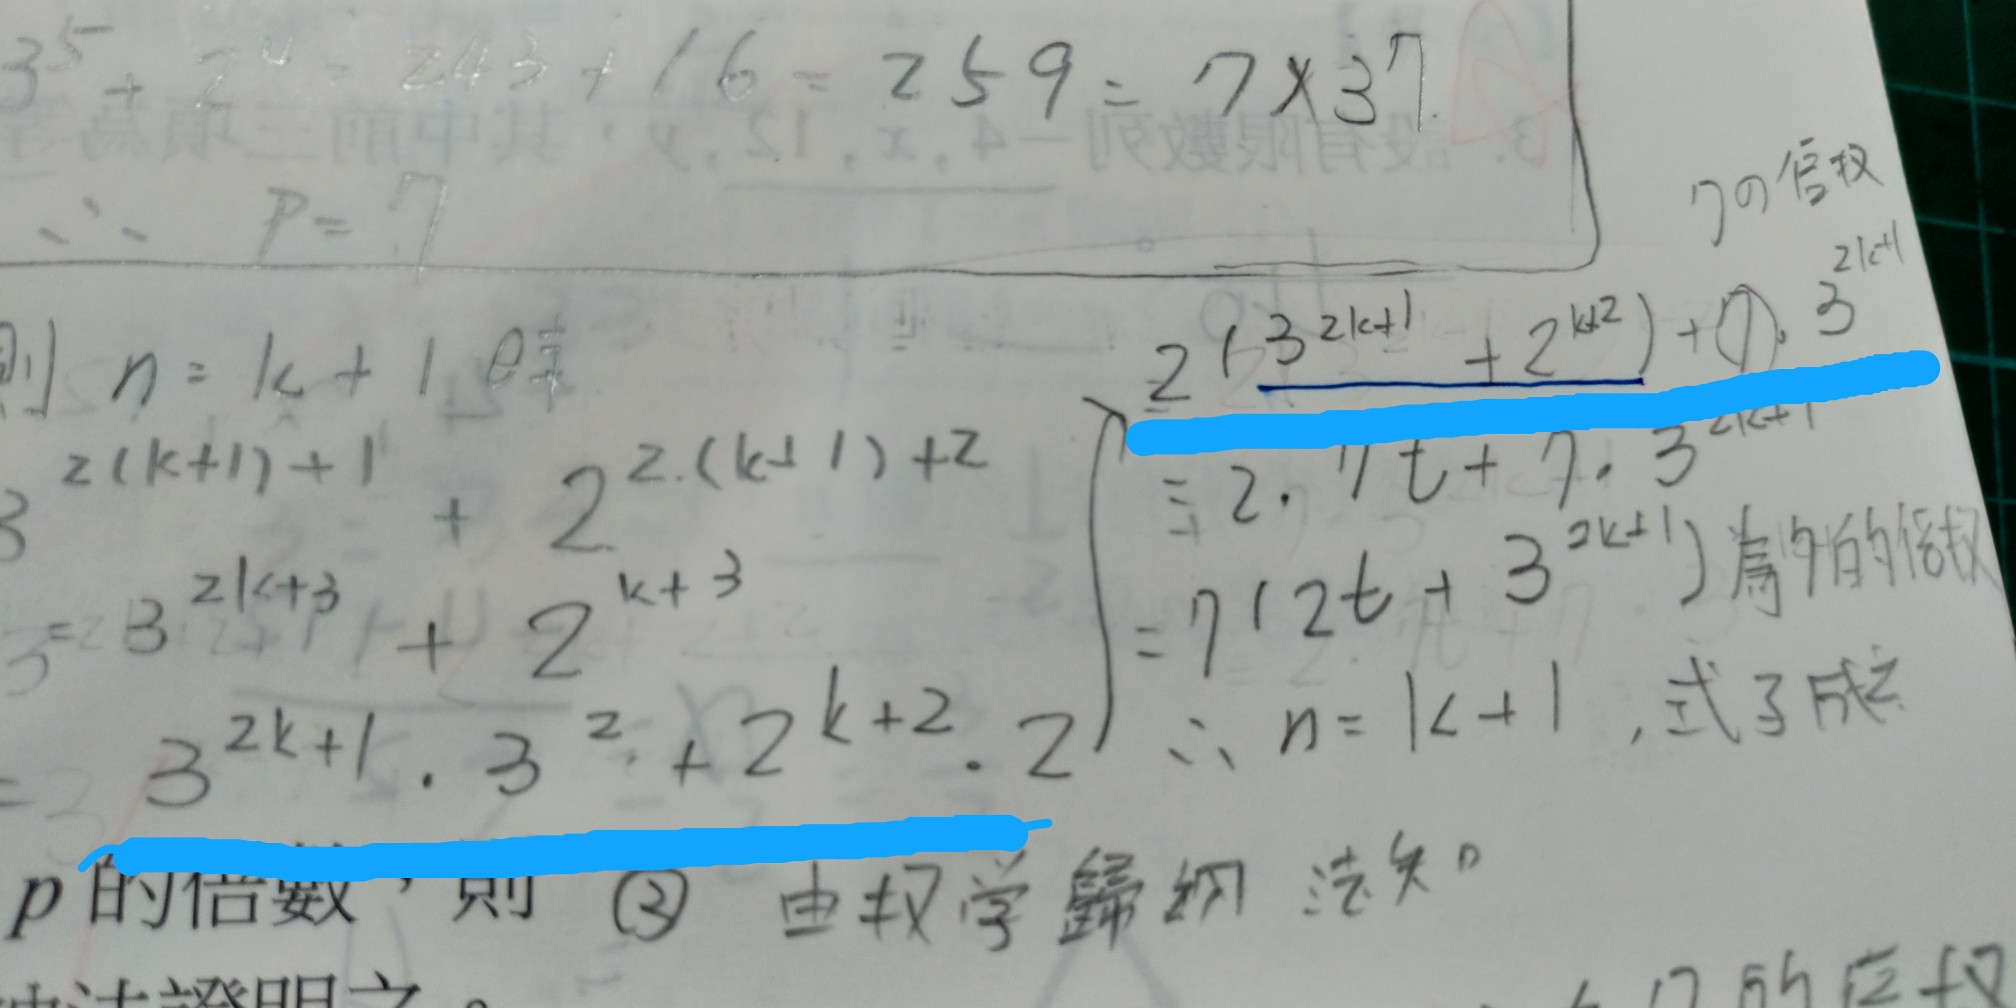 3⁵ + 2⁴ = 243 + 16 = 259 = 7×37
∴ P = 7
則 n = k + 1 時
3^{2(k+1)+1} + 2^{2·(k+1)+2}
= 3^{2k+3} + 2^{k+3}
= 3^{2k+1} · 3² + 2^{k+2} · 2
7の倍数
2(3^{2k+1} + 2^{k+2}) + 7·3^{2k+1}
= 2·7t + 7·3^{2k+1}
= 7(2t + 3^{2k+1}) 為7的倍数
∴ n = k+1, 式子成立
p 的倍數，則
③ 由数学歸納法知
證明之。
7的倍数
3. 設有限數列 -4, x, 12, y，其中前三項為等